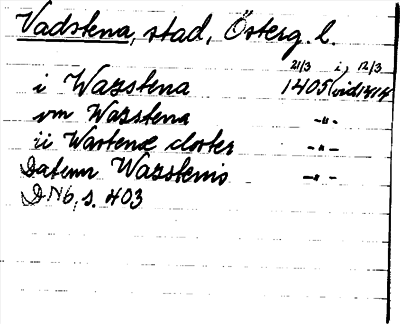 Vadstena, stad, Österg. l.
21/3 i, 12/3
i Wazstena 1405 (vid 1414
vm Wazstena -"-
ii Wastenæ closter -"-
Datum Wazstenis -"-
DN 6, s. 403